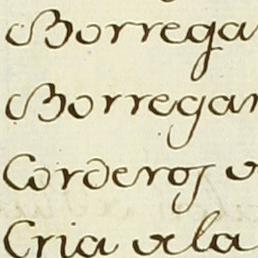 Borrega
Borregar
Corderos
Cria de la